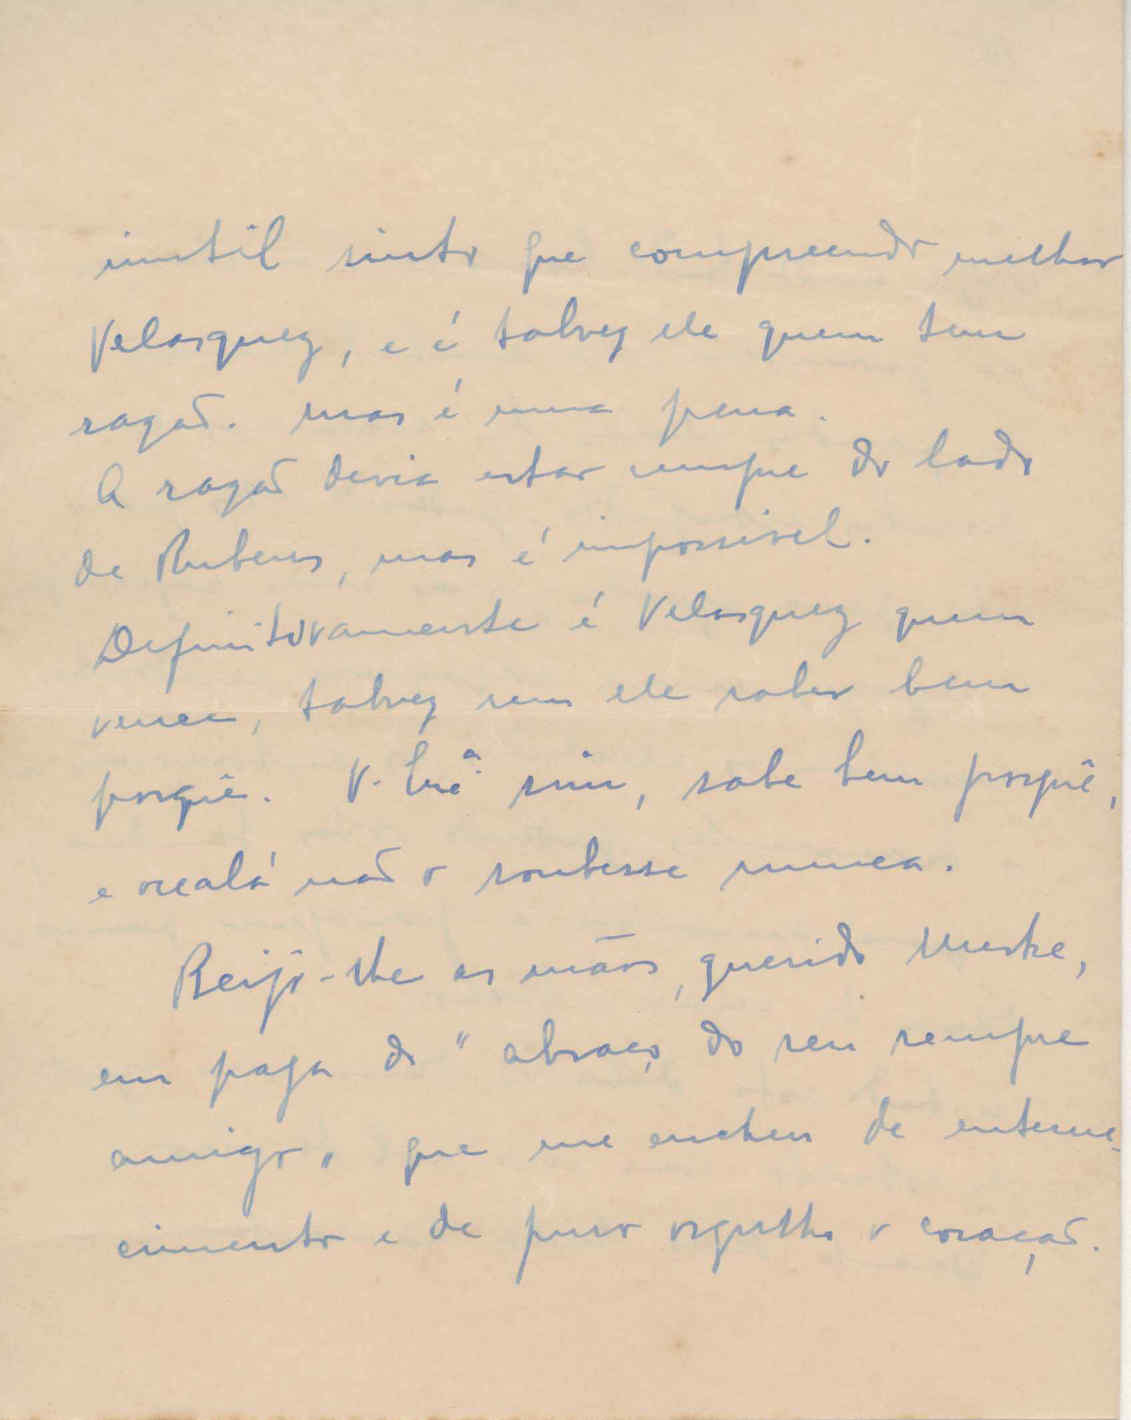 inutil sinto que compreendo melhor
Velasquez, e é talvez ele quem tem
razão. mas é uma pena.
A razão devia estar sempre do lado
de Rubens, mas é impossivel.
Definitivamente é Velasquez quem
vence, talvez sem ele saber bem
porquê. V. Exª sim, sabe bem porquê,
e oxalá não o soubesse nunca.
Beijo-lhe as mãos, querido Mestre,
em paga do "abraço do seu sempre
amigo" que me encheu de enterne-
cimento e de puro orgulho o coração.